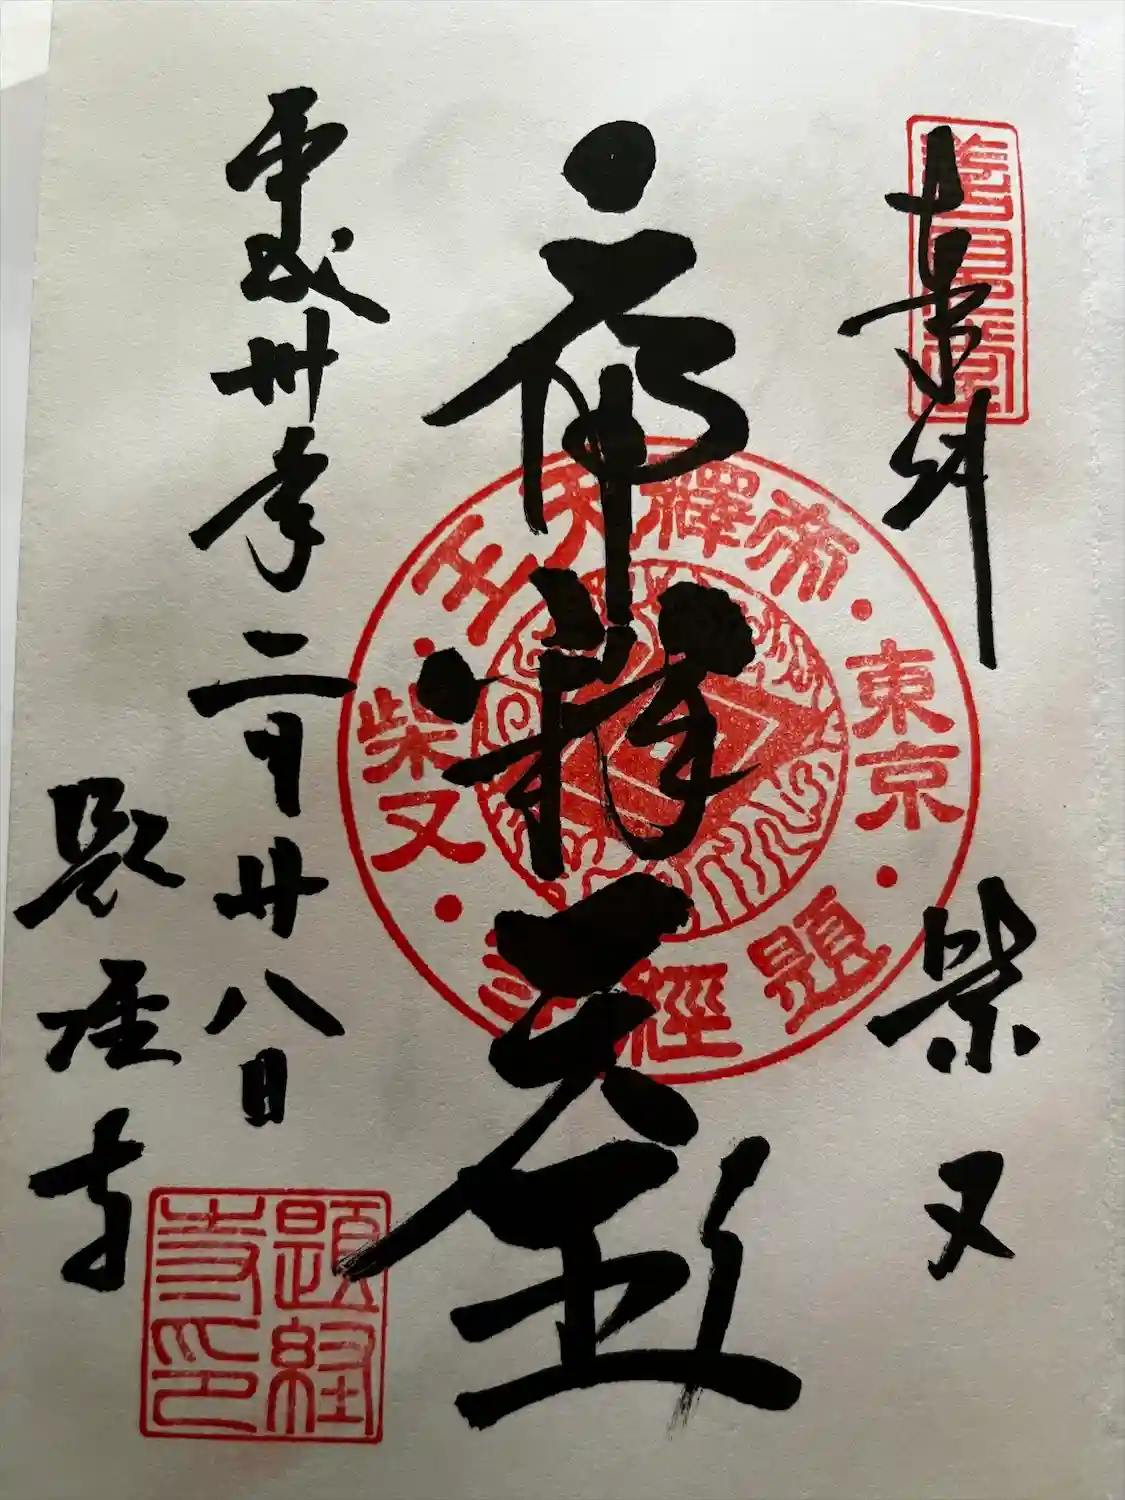 東京都
柴又
帝釋天王
平成卅年二月廿八日
題経寺
帝釋天王
東京
柴又
題經寺
題経寺印